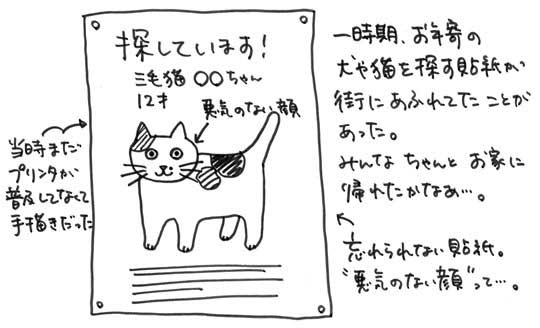 探しています！
三毛猫 〇〇ちゃん
12才
悪気のない顔
当時まだ
プリンタが
普及してなくて
手描きだった
一時期、お年寄の
犬や猫を探す貼紙が
街にあふれてたことが
あった。
みんな ちゃんと お家に
帰れたかなあ…。
忘れられない貼紙。
"悪気のない顔"って…。